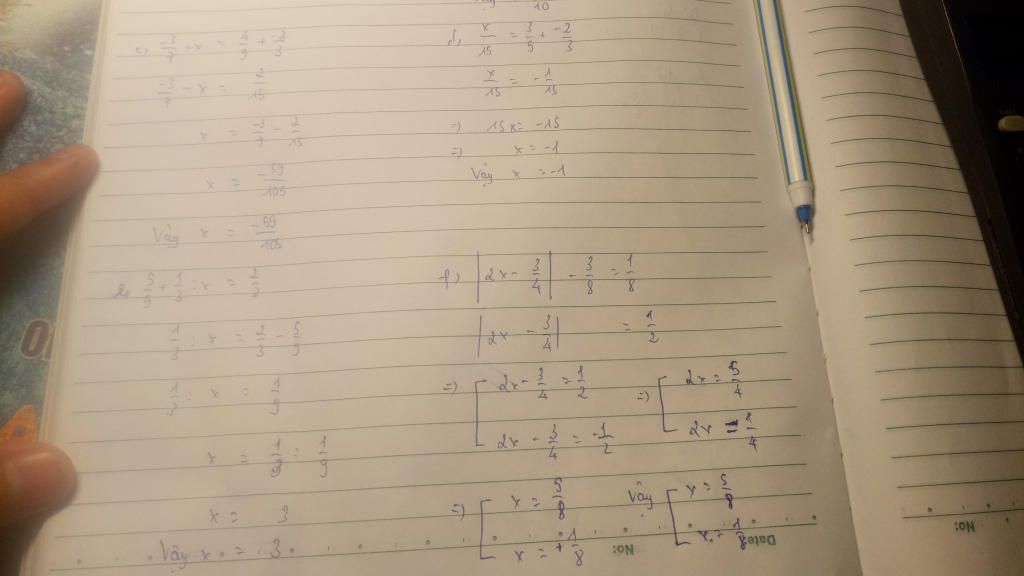 10
c) \frac{-3}{7} - x = \frac{4}{5} + \frac{-2}{3}
\frac{-3}{7} - x = \frac{2}{15}
x = \frac{-3}{7} - \frac{2}{15}
x = \frac{-59}{105}
Vậy x = \frac{-59}{105}
d, \frac{x}{15} = \frac{3}{5} + \frac{-2}{3}
\frac{x}{15} = -\frac{1}{15}
=) 15x = -15
=) x = -1
Vậy x = -1
\frac{5}{9} + \frac{1}{3} : x = \frac{2}{3}
\frac{1}{3} : x = \frac{2}{3} - \frac{5}{9}
\frac{1}{3} : x = \frac{1}{9}
x = \frac{1}{3} : \frac{1}{9}
x = 3
Vậy x = 3
f) |2x - \frac{3}{4}| - \frac{3}{8} = \frac{1}{8}
|2x - \frac{3}{4}| = \frac{1}{2}
=) [ 2x - \frac{3}{4} = \frac{1}{2} =) [ 2x = \frac{5}{4}
2x - \frac{3}{4} = -\frac{1}{2} 2x = \frac{1}{4}
=) [ x = \frac{5}{8} Vậy [ x = \frac{5}{8}
x = +\frac{1}{8} x = \frac{1}{8}
No:
Date
No: